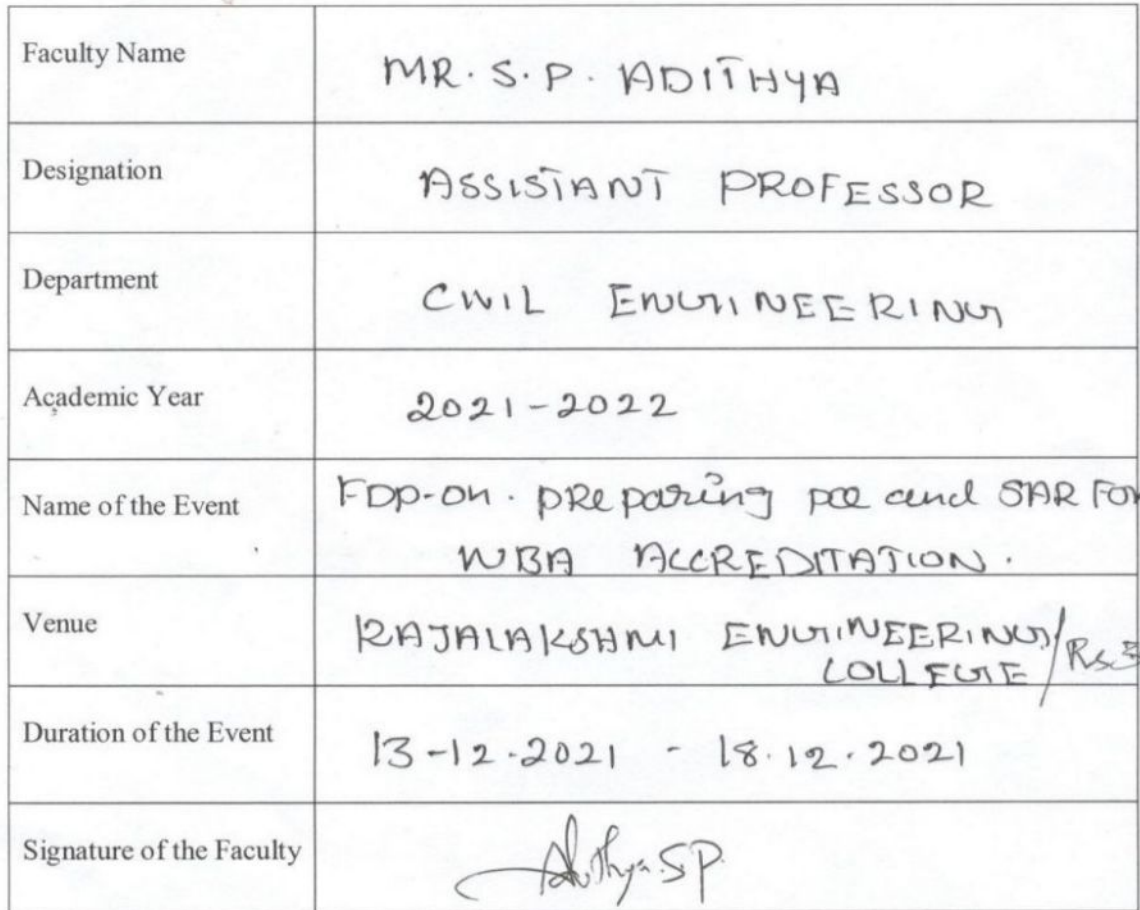 Faculty Name MR. S. P. ADITHYA
Designation ASSISTANT PROFESSOR
Department CIVIL ENGINEERING
Academic Year 2021-2022
Name of the Event FDP-on. PReparing and SAR FOR
NBA ACCREDITATION.
Venue RAJALAKSHMI ENGINEERING
COLLEGE / Rs.3
Duration of the Event 13-12-2021 - 18.12.2021
Signature of the Faculty Adithya. SP